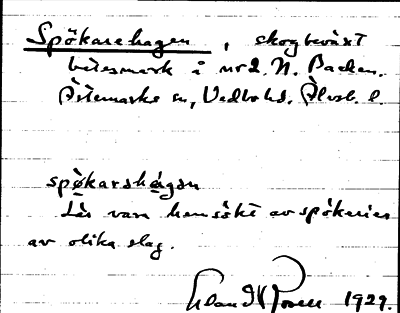 Spökarehagen, skogbeväxt
betesmark å nr 2. N. Backen.
Ärtemarks sn, Vedbo hd. Älvsb. l.
spökarshágən
Lär vara hemsökt av spökerier
av olika slag.
1929.